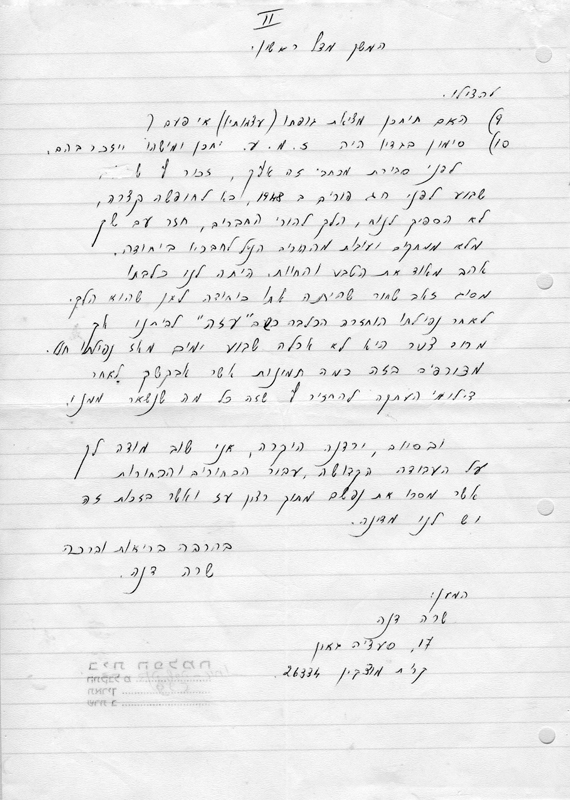 II
המשך מדף ראשון.
להצילו.
9) האם תיתכן מציאת גופתו (עצמותיו) אי פעם ?
10) סימון בגדיו היה ז. מ. ע. יתכן ומישהו ייזכר בהם.
לפני סדרת מכתבי זה אליך, זכור לי ש
שבוע לפני חג פורים ב 1948, בא לחופשה קצרה,
לא הספיק לנוח, הלך להורי החברים, חזר עם שק
מלא ממתקים ועוגות מההורים הנ״ל לחבריו ביחידה.
אהב מאוד את הטבע והחיות. היתה לנו כלבתו
מסוג זאב שחור שהיתה אתו ביחידה לאן שהוא הלך.
לאחר נפילתו הוחזרה הכלבה בשם "עזה" לביתנו אך
מרוב צער היא לא אכלה שבוע ימים מאז נפילתו
מצורפ״ב בזה כמה תמונות אשר אבקשך לאחר
צילומי העתקה להחזיר לי שזה כל מה שנשאר ממנו.
ובסיום, ירדנה היקרה, אני שוב מודה לך
על העבודה הקדושה, עבור הבחורים והבחורות
אשר מסרו את נפשם מתוך רצון עז ואשר בזכות זה
יש לנו מדינה.
בהרבה בריאות וברכה
שרה דנה.
המען:
שרה דנה
17, סעדיה גאון
קרית מוצקין 26334.
בית הפלמח